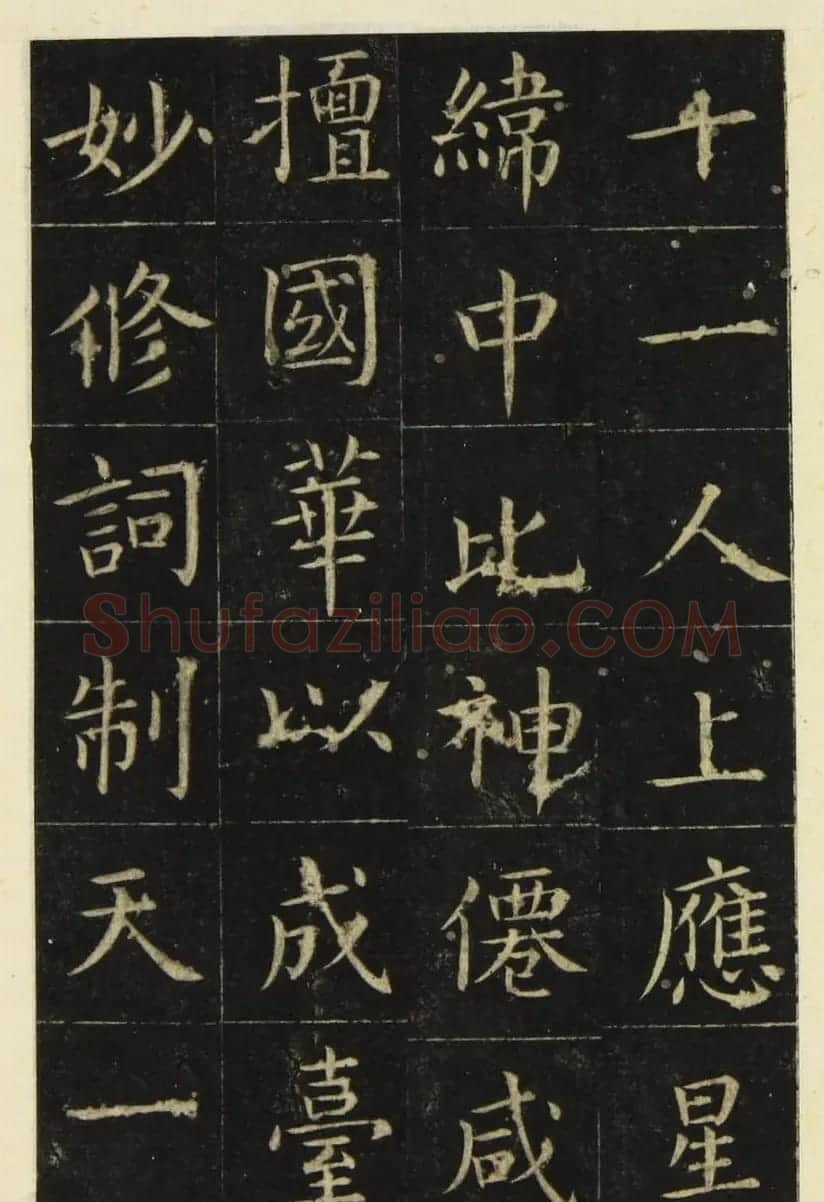 十一人上應星
緯中比神僊咸
擅國華以成臺
妙修詞制天一
Shufaziliao.COM